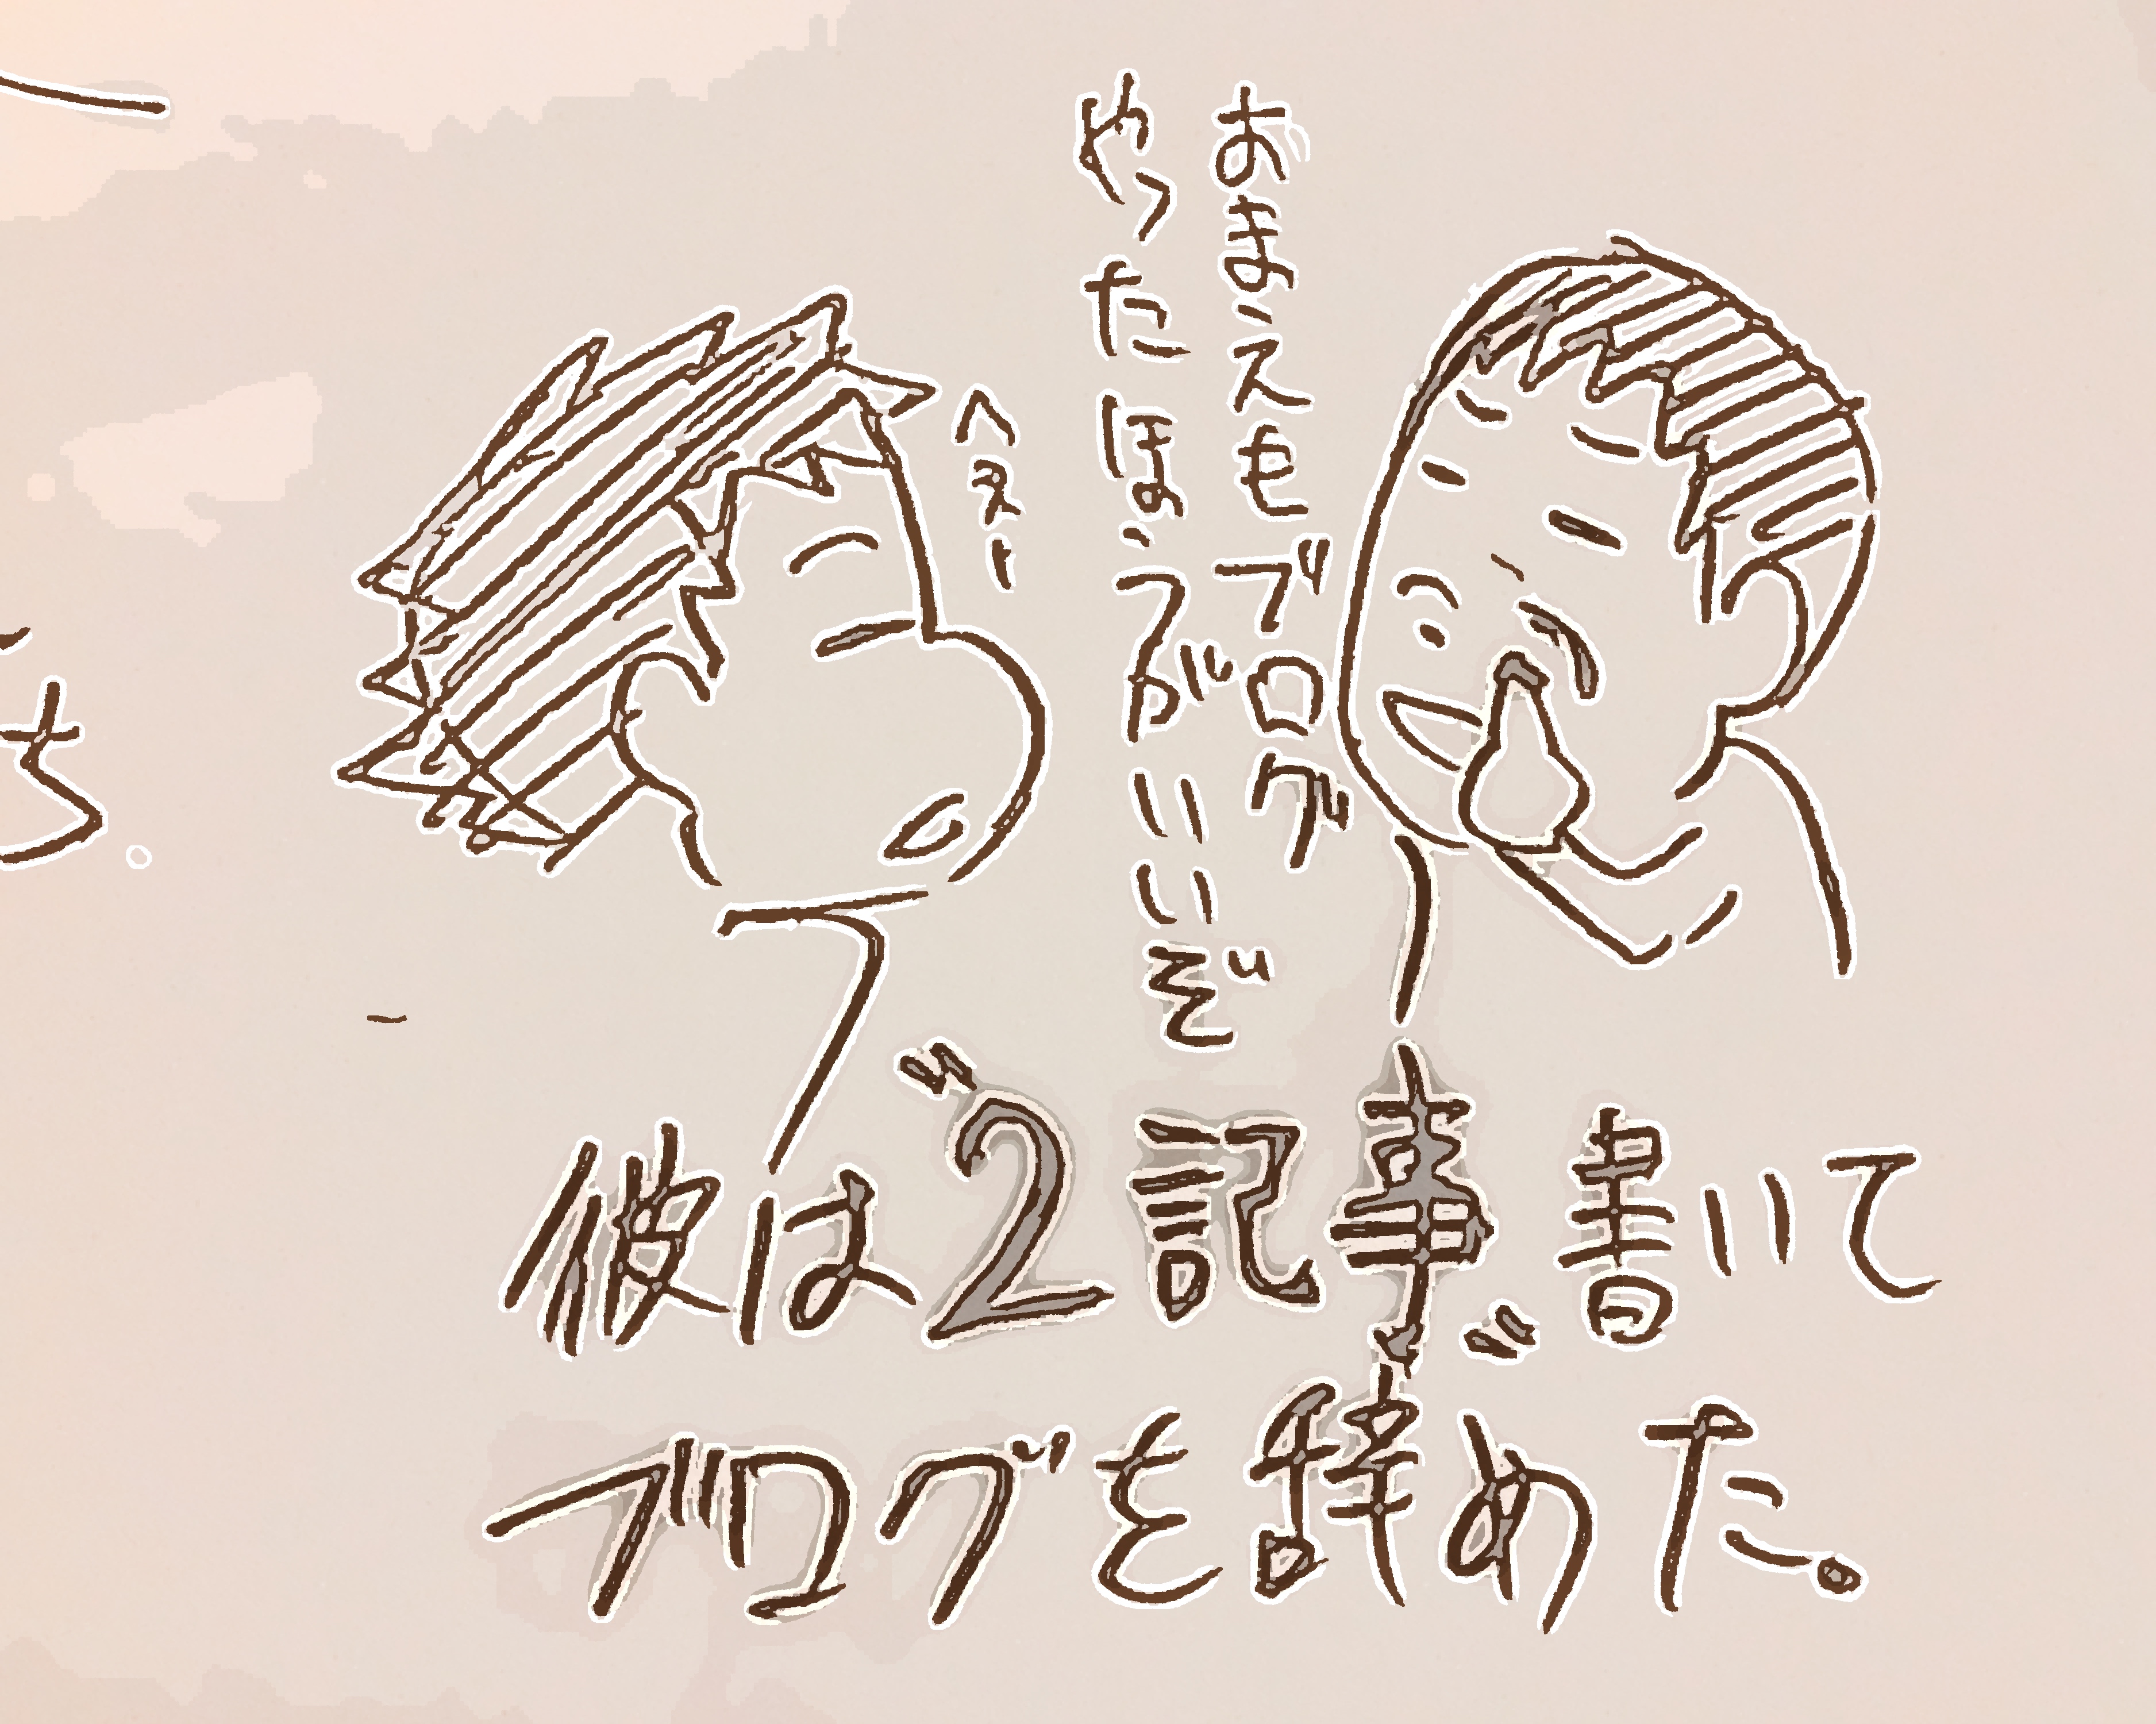 おまえもブログ
やったほうがいいぞ
へえー
彼は2記事書いて
ブログを辞めた。
ち。